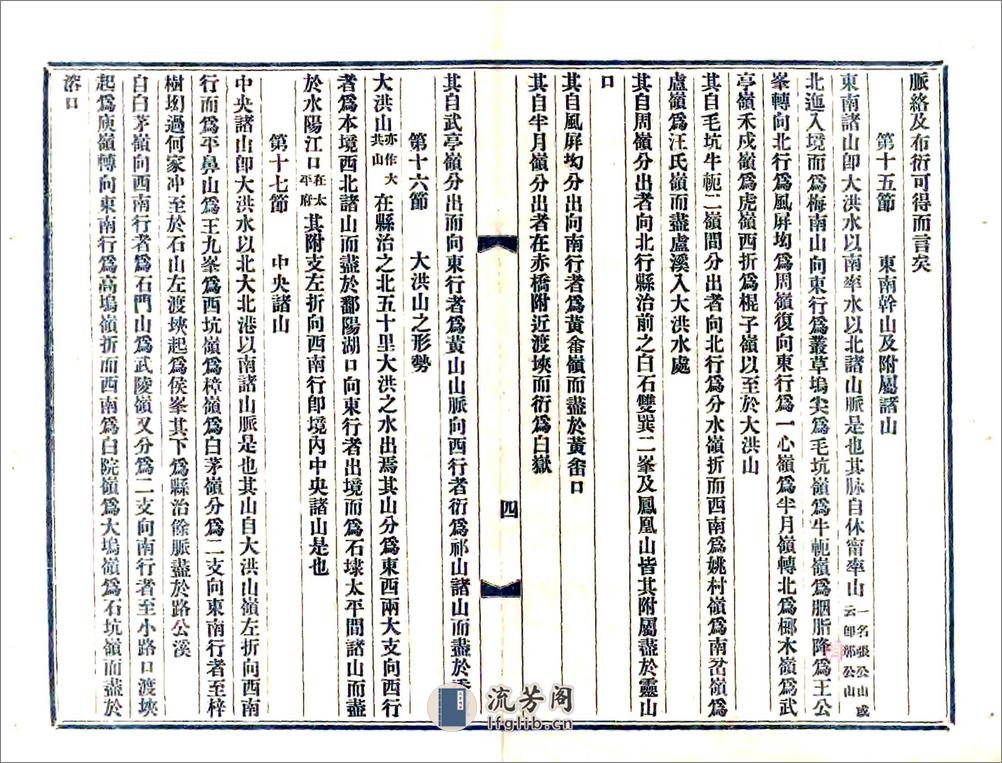 脈絡及布衍可得而言矣
第十五節　東南幹山及附屬諸山
東南諸山卽大洪水以南率水以北諸山脈是也其脉自休甯率山一名張公山或云卽郰公山
北迤入境而爲梅南山向東行爲叢草塢尖爲毛坑嶺爲牛軛嶺爲胭脂降爲王公
峯轉向北行爲風屏坳爲周嶺復向東行爲一心嶺爲半月嶺轉北爲椰木嶺爲武
亭嶺禾戍嶺爲虎嶺西折爲棍子嶺以至於大洪山
其自毛坑牛軛二嶺間分出者向北行爲分水嶺折而西南爲姚村嶺爲南岔嶺爲
盧嶺爲汪氏嶺而盡盧溪入大洪水處
其自周嶺分出者向北行縣治前之白石雙巽二峯及鳳凰山皆其附屬盡於靈山
口
其自風屏坳分出向南行者爲黃畬嶺而盡於黃畬口
其自半月嶺分出者在赤橋附近渡堎而衍爲白嶽
其自武亭嶺分出而向東行者爲黃山山脈向西行者衍爲祁山諸山而盡於
四
第十六節　大洪山之形勢
大洪山亦作大共山在縣治之北五十里大洪之水出焉其山分爲東西兩大支向西行
者爲本境西北諸山而盡於鄱陽湖口向東行者出境而爲石埭太平間諸山而盡
於水陽江口在太平府其附支左折向西南行卽境內中央諸山是也
第十七節　中央諸山
中央諸山卽大洪水以北大北港以南諸山脈是也其山自大洪山嶺左折向西南
行而爲平鼻山爲王九峯爲西坑嶺爲樟嶺爲白茅嶺分爲二支向東南行者至梓
樹坳過何家冲至於石山左渡堎起爲侯峯其下爲縣治餘脈盡於路公溪
自白茅嶺向西南行者爲石門山爲武陵嶺又分爲二支向南行者至小路口渡堎
起爲庾嶺轉向東南行爲高塢嶺折而西南爲白院嶺爲大塢嶺爲石坑嶺而盡於
溶口
流芳阁
lfglib.cn